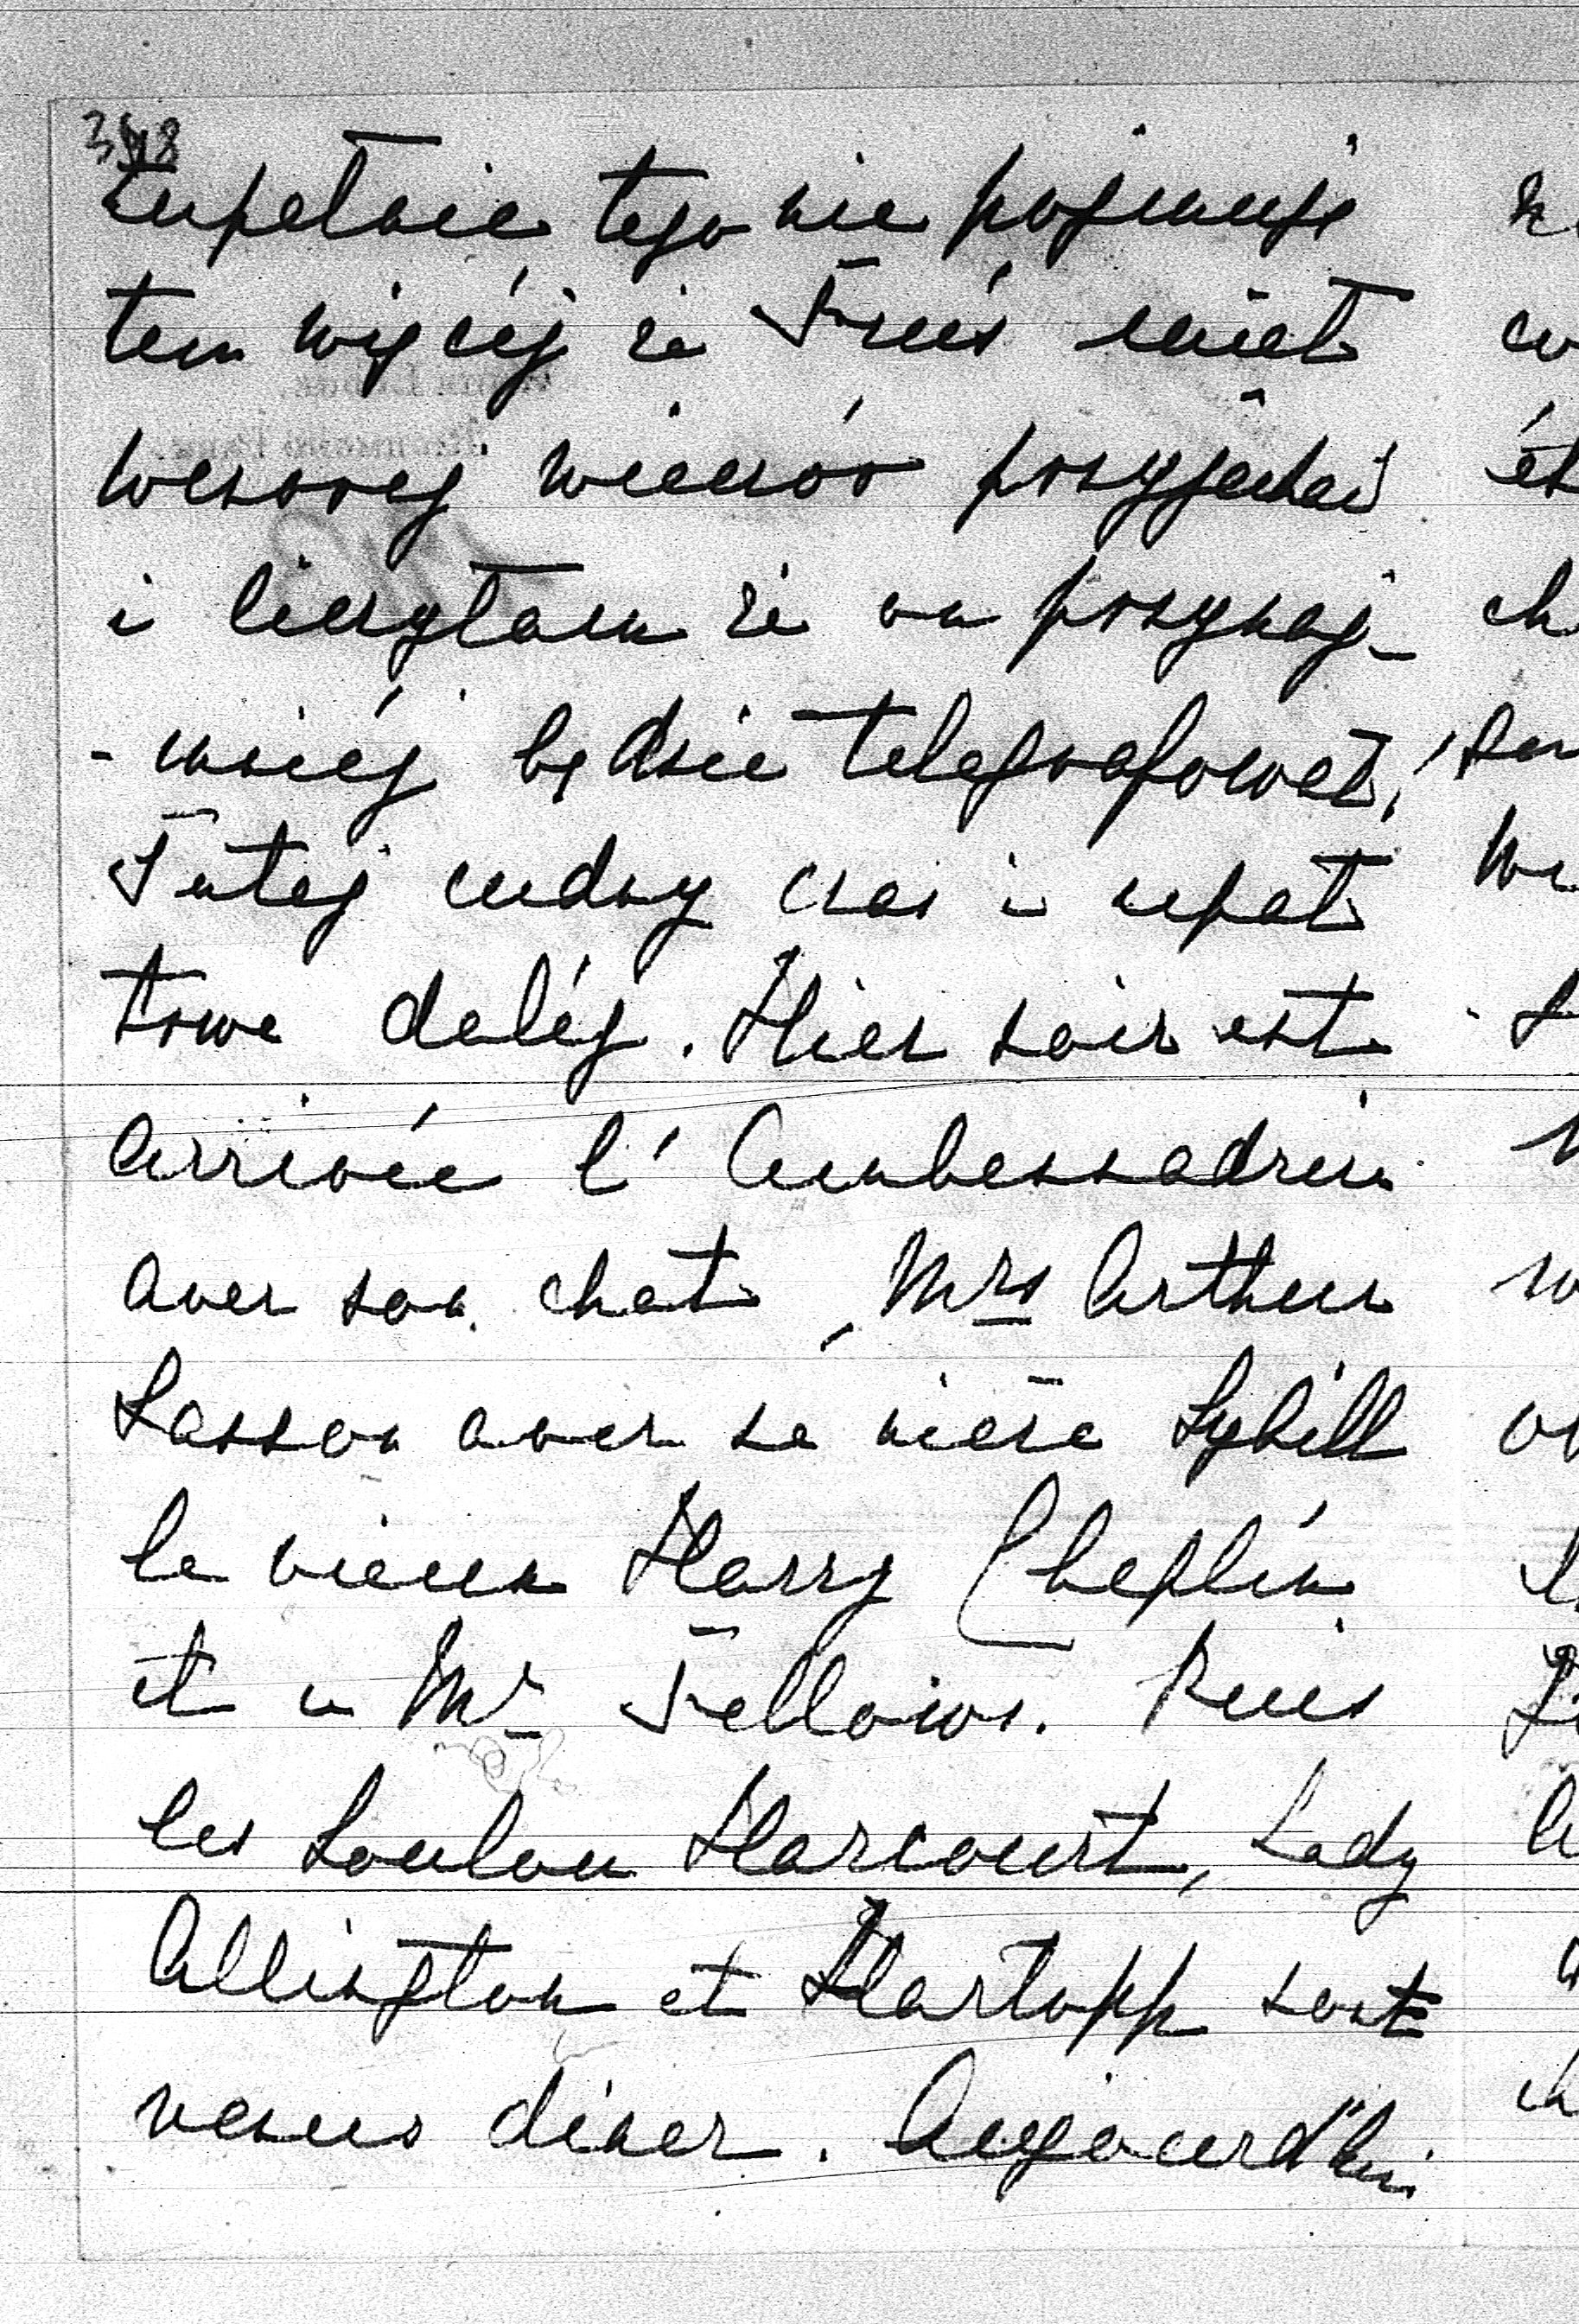 348
Zupełnie tego nie pojmuję
tem więcéj że Fruś miał
wczoraj wieczór przyjechać
i liczyłam że on przynaj-
-mniéj będzie telegrafował,
Tutej cudny czas i upał
trwa daléj. Hier soir est
arrivée l'Ambassadrice
avec son chat, Mrs Arthur
Sasson avec sa nièce Sybill
le vieux Harry Cheplin
et u Mr Fellows. Puis
les Loulou Harcourt, Lady
Allington et Hartopp sont
venus diner. Aujourd'hui